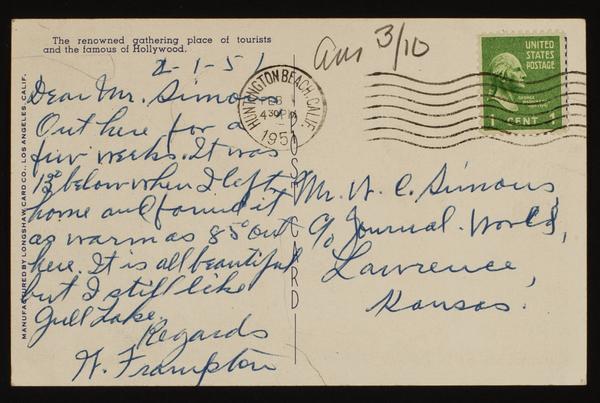 The renowned gathering place of tourists
and the famous of Hollywood.
2-1-51
Dear Mr. Simons
Out here for a
few weeks. It was
13° below when I left
home and found it
as warm as 85° out
here. It is all beautiful
but I still like
Gull Lake.
Regards
H. Frampton
MANUFACTURED BY LONGSHAW CARD CO., LOS ANGELES CALIF.
POST CARD
HUNTINGTON BEACH, CALIF.
FEB 1
4 30 PM
1951
Ans 3/10
UNITED
STATES
POSTAGE
1 CENT 1
Mr. W. C. Simons,
c/o Journal-World,
Lawrence,
Kansas.